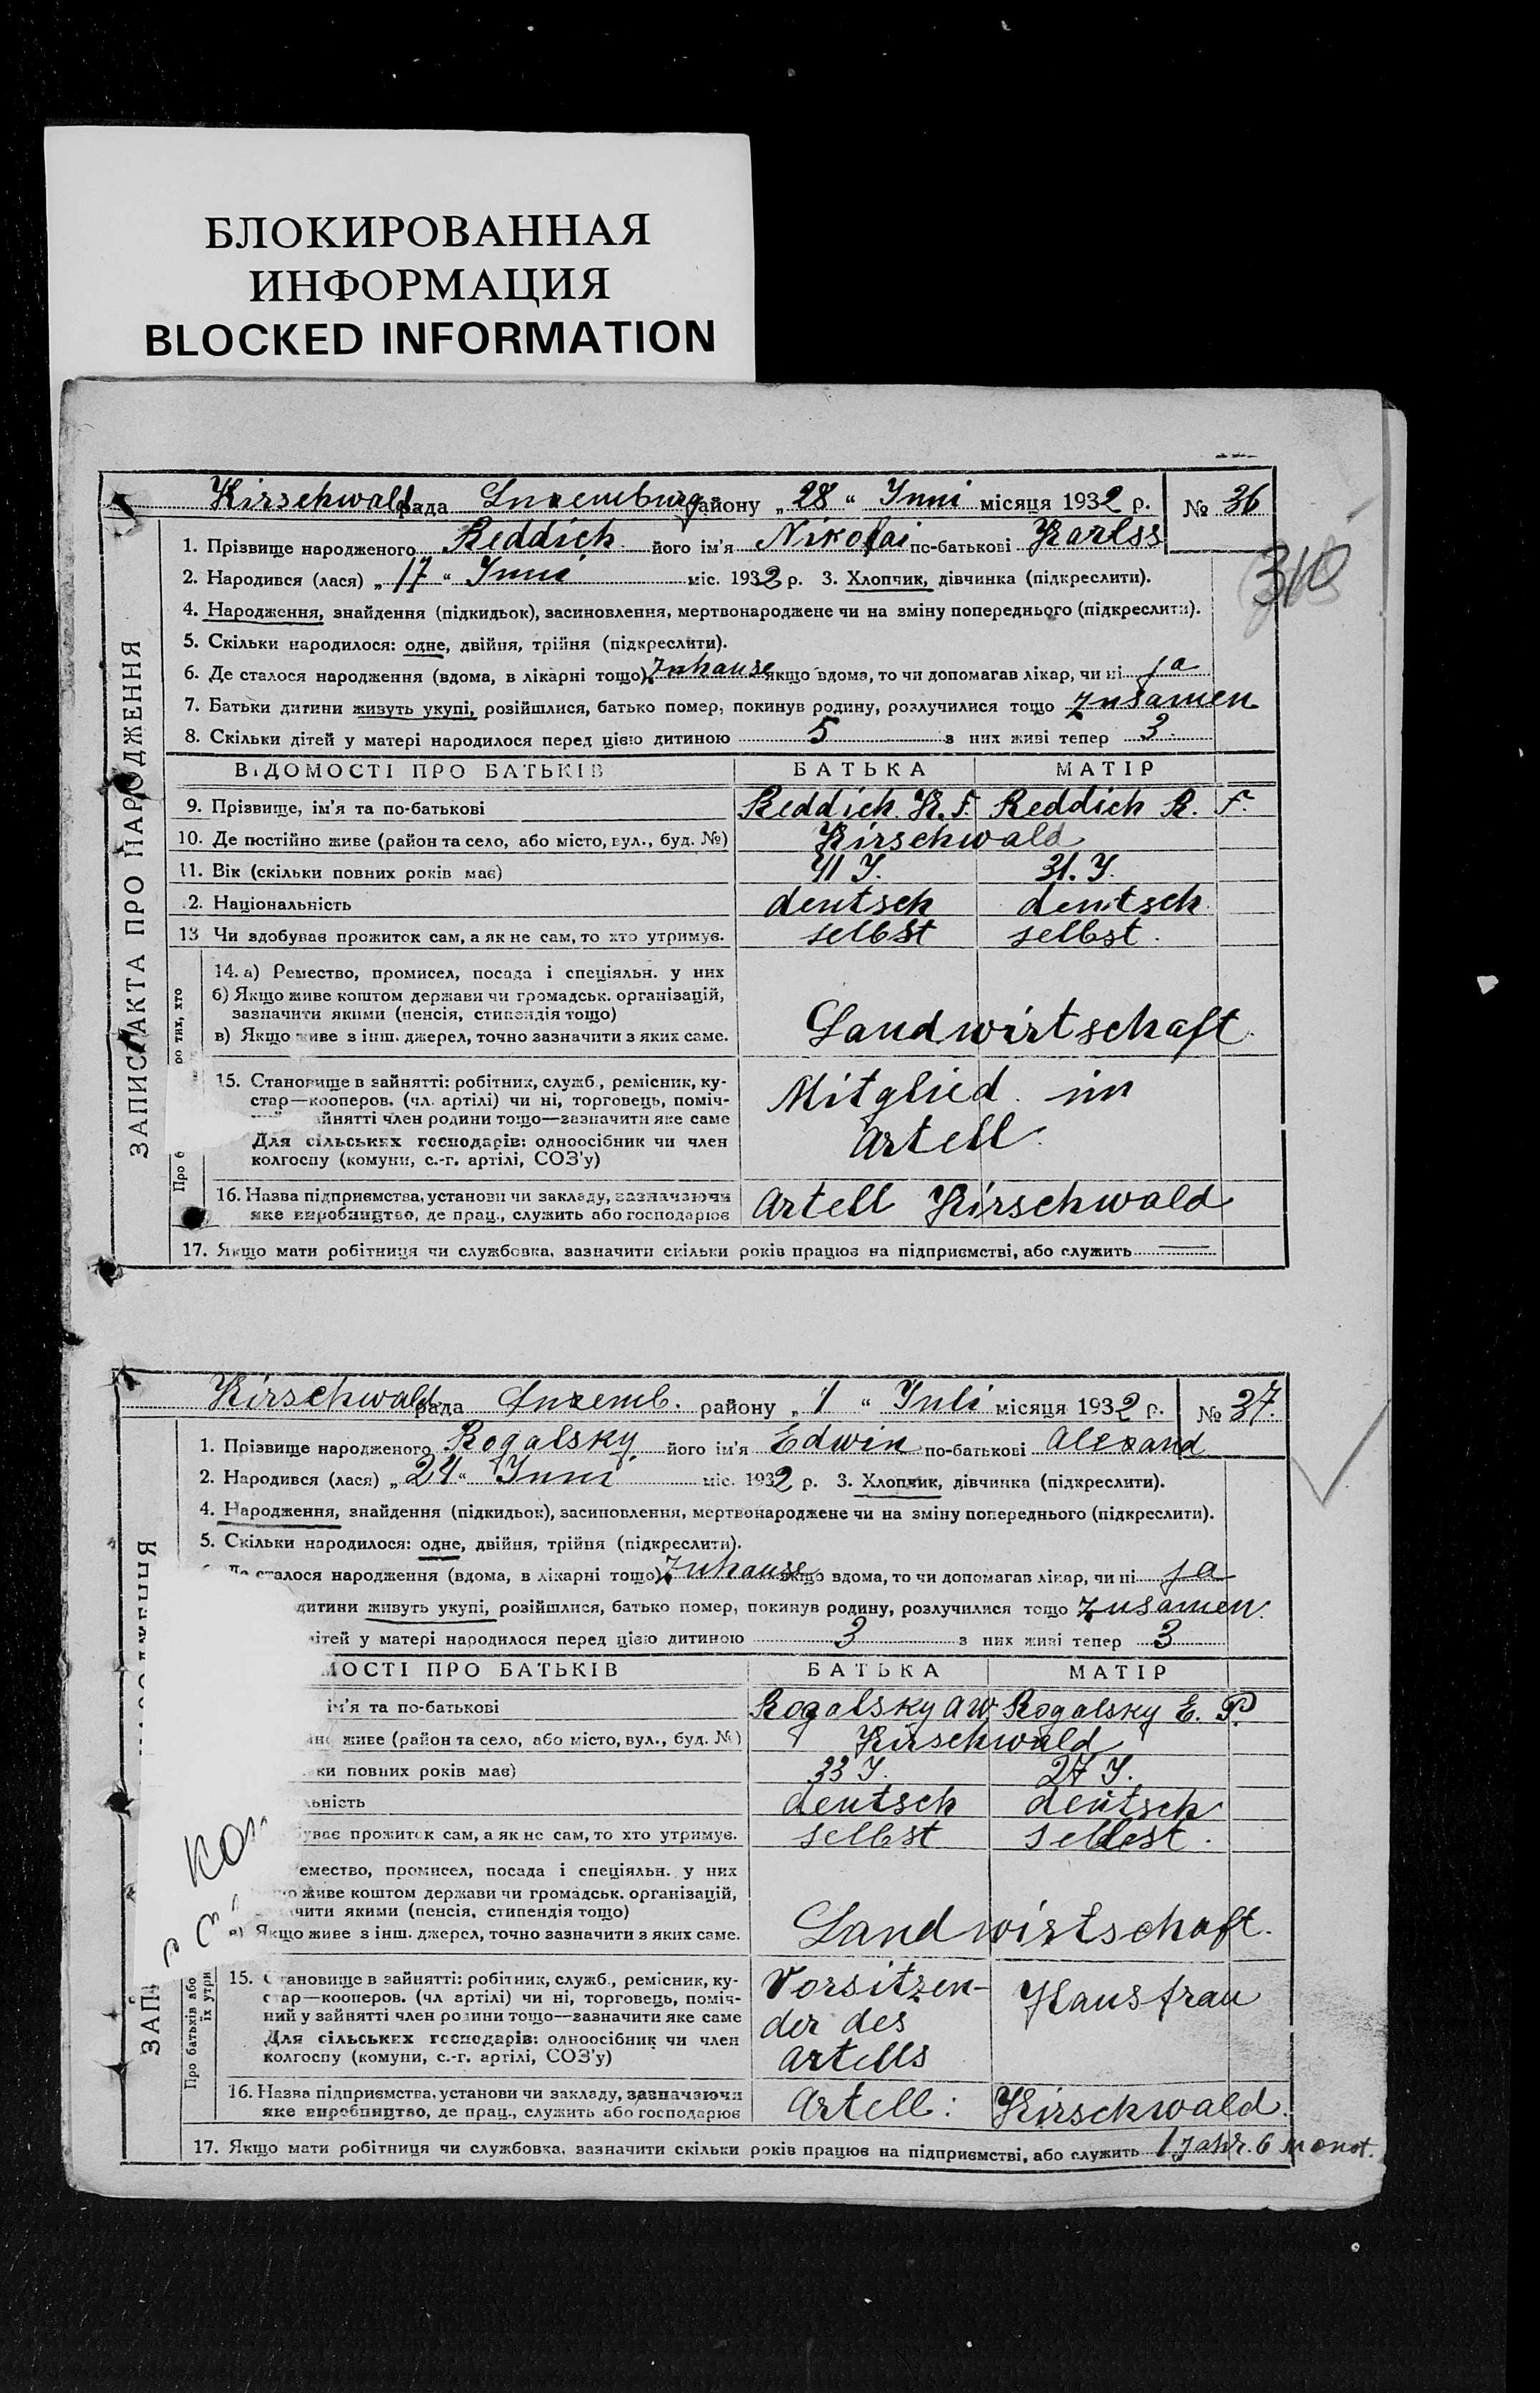 БЛОКИРОВАННАЯ
ИНФОРМАЦИЯ
BLOCKED INFORMATION
Kirschwald рада Luxemburg району „ 28 “ Juni місяця 1932 р. № 36
310
ЗАПИС АКТА ПРО НАРОДЖЕННЯ
1. Прізвище народженого Reddich його ім'я Nikolai по-батькові Karlss
2. Народився (лася) „ 17 “ Juni міс. 1932 р. 3. Хлопчик, дівчинка (підкреслити).
4. Народження, знайдення (підкидьок), засиновлення, мертвонароджене чи на зміну попереднього (підкреслити).
5. Скільки народилося: одне, двійня, трійня (підкреслити).
6. Де сталося народження (вдома, в лікарні тощо) Zuhause якщо вдома, то чи допомагав лікар, чи ні ja
7. Батьки дитини живуть укупі, розійшлися, батько помер, покинув родину, розлучилися тощо zusamen
8. Скільки дітей у матері народилося перед цією дитиною 5 з них живі тепер 3
ВІДОМОСТІ ПРО БАТЬКІВ БАТЬКА МАТІР
9. Прізвище, ім'я та по-батькові Reddich K. F. Reddich R. F.
10. Де постійно живе (район та село, або місто, вул., буд. №) Kirschwald
11. Вік (скільки повних років має) 41 J. 31. J.
12. Національність deutsch deutsch
13 Чи здобував прожиток сам, а як не сам, то хто утримує. selbst selbst.
14. а) Ремество, промисел, посада і спеціяльн. у них
б) Якщо живе коштом держави чи громадськ. організацій,
зазначити якими (пенсія, стипендія тощо)
в) Якщо живе з інш. джерел, точно зазначити з яких саме. Landwirtschaft
15. Становище в зайнятті: робітник, служб., ремісник, ку-
стар—кооперов. (чл. артілі) чи ні, торговець, поміч-
айнятті член родини тощо—зазначити яке саме Mitglied im
Для сільських господарів: одноосібник чи член Artell
колгоспу (комуни, с.-г. артілі, СОЗ'у)
16. Назва підприємства, установи чи закладу, зазначаючи
яке виробництво, де прац., служить або господарює Artell Kirschwald
17. Якщо мати робітниця чи службовка, зазначити скільки років працює на підприємстві, або служить —
Kirschwald рада Luxemb. району „ 1 “ Juli місяця 1932 р. № 37.
1. Прізвище народженого Rogalsky його ім'я Edwin по-батькові Alexand
2. Народився (лася) „ 24 “ Juni міс. 1932 р. 3. Хлопчик, дівчинка (підкреслити).
4. Народження, знайдення (підкидьок), засиновлення, мертвонароджене чи на зміну попереднього (підкреслити).
5. Скільки народилося: одне, двійня, трійня (підкреслити).
сталося народження (вдома, в лікарні тощо) Zuhause якщо вдома, то чи допомагав лікар, чи ні ja
дитини живуть укупі, розійшлися, батько помер, покинув родину, розлучилися тощо zusamen.
ітей у матері народилося перед цією дитиною 3 з них живі тепер 3
МОСТІ ПРО БАТЬКІВ БАТЬКА МАТІР
ім'я та по-батькові Rogalsky A W. Rogalsky E. P.
живе (район та село, або місто, вул., буд. №) Kirschwald
ки повних років має) 33 J. 27 J.
льність deutsch deutsch
ував прожиток сам, а як не сам, то хто утримує. selbst selbst.
емество, промисел, посада і спеціяльн. у них
живе коштом держави чи громадськ. організацій,
чити якими (пенсія, стипендія тощо)
в) Якщо живе з інш. джерел, точно зазначити з яких саме. Landwirtschaft.
15. Становище в зайнятті: робітник, служб., ремісник, ку-
стар—кооперов. (чл артілі) чи ні, торговець, поміч- Vorsitzen- Hausfrau
ний у зайнятті член родини тощо—зазначити яке саме der des
Для сільських господарів: одноосібник чи член Artells
колгоспу (комуни, с.-г. артілі, СОЗ'у)
16. Назва підприємства, установи чи закладу, зазначаючи
яке виробництво, де прац., служить або господарює Artell: Kirschwald.
17. Якщо мати робітниця чи службовка, зазначити скільки років працює на підприємстві, або служить 1 Jahr. 6 monat.